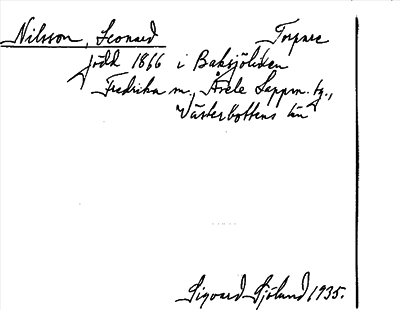 Nilsson, Leonard Torpare
född 1866 i Baksjöliden
Fredrika sn., Åsele Lappm. tg.,
Västerbottens län
Sigvard Sjöland 1935.